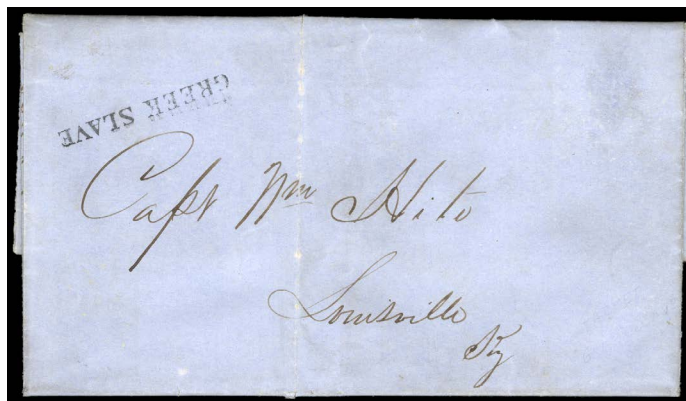 GREEK SLAVE
Capt Wm Hite
Louisville
Ky